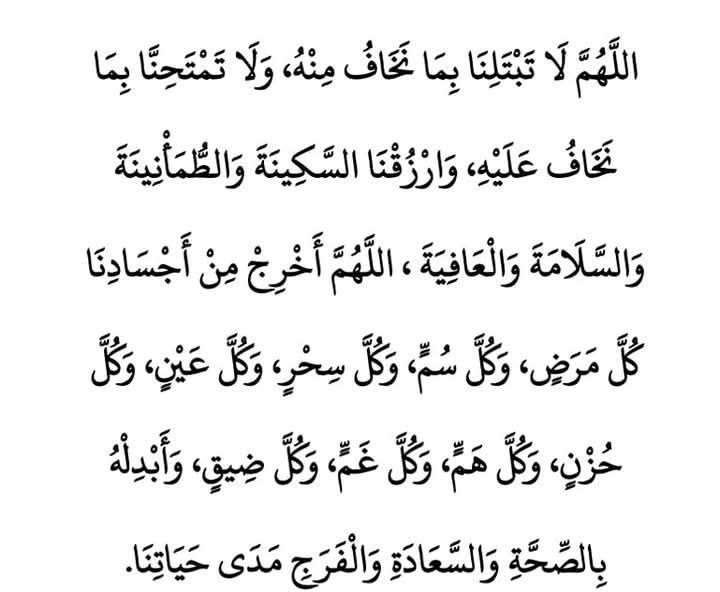 اللَّهُمَّ لَا تَبْتَلِنَا بِمَا نَخَافُ مِنْهُ، وَلَا تَمْتَحِنَّا بِمَا
نَخَافُ عَلَيْهِ، وَارْزُقْنَا السَّكِينَةَ وَالطُّمَأْنِينَةَ
وَالسَّلَامَةَ وَالْعَافِيَةَ ، اللَّهُمَّ أَخْرِجْ مِنْ أَجْسَادِنَا
كُلَّ مَرَضٍ، وَكُلَّ سُمٍّ، وَكُلَّ سِحْرٍ، وَكُلَّ عَيْنٍ، وَكُلَّ
حُزْنٍ، وَكُلَّ هَمٍّ، وَكُلَّ غَمٍّ، وَكُلَّ ضِيقٍ، وَأَبْدِلْهُ
بِالصِّحَّةِ وَالسَّعَادَةِ وَالْفَرَجِ مَدَى حَيَاتِنَا.